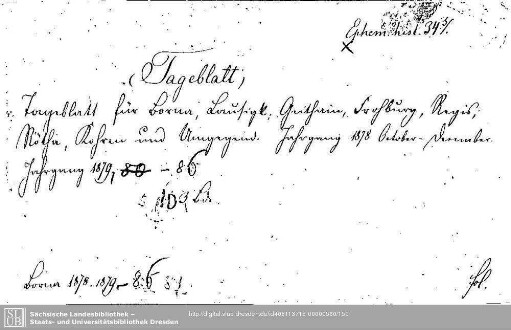 Ephem. hist. 34
Tageblatt,
Tageblatt für Borna, Lausigk, Geithain, Frohburg, Regis,
Rötha, Kohren und Umgegend. Jahrgang 1878 October - December.
Jahrgang 1879, 80 - 86
103 B.
Borna 1878. 1879 - 86
fol.
Sächsische Landesbibliothek –
Staats- und Universitätsbibliothek Dresden